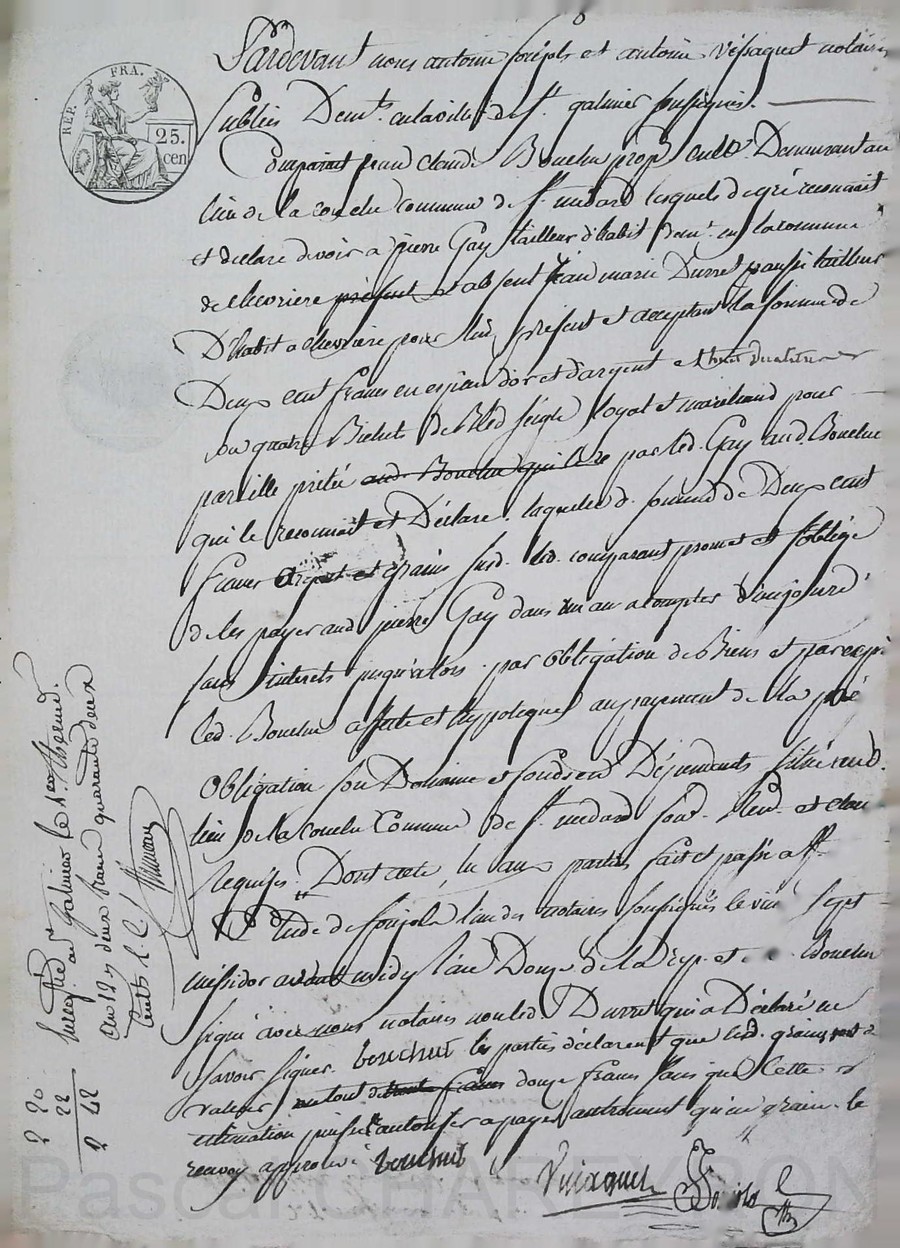 REP. FRA.
25.
cen
Pardevant nous antoine et antoine notaires
publics Demt. en la ville de St. galmier soussignés.
Comparait jean claude Bouchu propre. cultr. Demeurant au
lieu de la commune de St. medard lequel de gré reconnait
et declare devoir a pierre Gay tailleur d'habit demt. en la commune
de chevriere present et absent jean marie Durret aussi tailleur
D'habit a chevriere pour lui present et acceptant la somme de
Deux cent francs en especes d'or et d'argent et
ou quatre Bichets de Bled seigle loyal et marchand pour
pareille pretée aud. Bouchu qui le re par led. Gay aud. Bouchu
qui le reconnait et Déclare. laquelle d. somme de Deux cent
francs argent et grains sud. led. comparant promet et s'oblige
de les payer aud. pierre Gay dans un an a compter d'aujourd'
sans interets jusqu'alors. par obligation de Biens et par exprès
led. Bouchu affecte et hypoteque au payement de la pnte
Obligation son Domaine et fonds en Dépendants situé aud.
lieu de la commune de St. medard et
Requises. Dont acte, lu aux parties fait et passé a St. g
Etude de l'un des notaires soussignés le vingt sept
messidor avant midy l'an Douze de la Rep. et Bouchu
signé avec nous notaires non led. Durret qui a Déclaré ne
savoir signer. bouchut les parties déclarent que led. grains sont de
valeur en tout de francs douze francs sans que cette
estimation puisse l'autoriser a payer autrement qu'en grain. le
renvoy approuvé bouchut
Enregistré a St. Galmier le 1er. Thermid.
an 12 deux francs quarante deux
cents
2 20
22
2 42
Pascal CHAREYRON